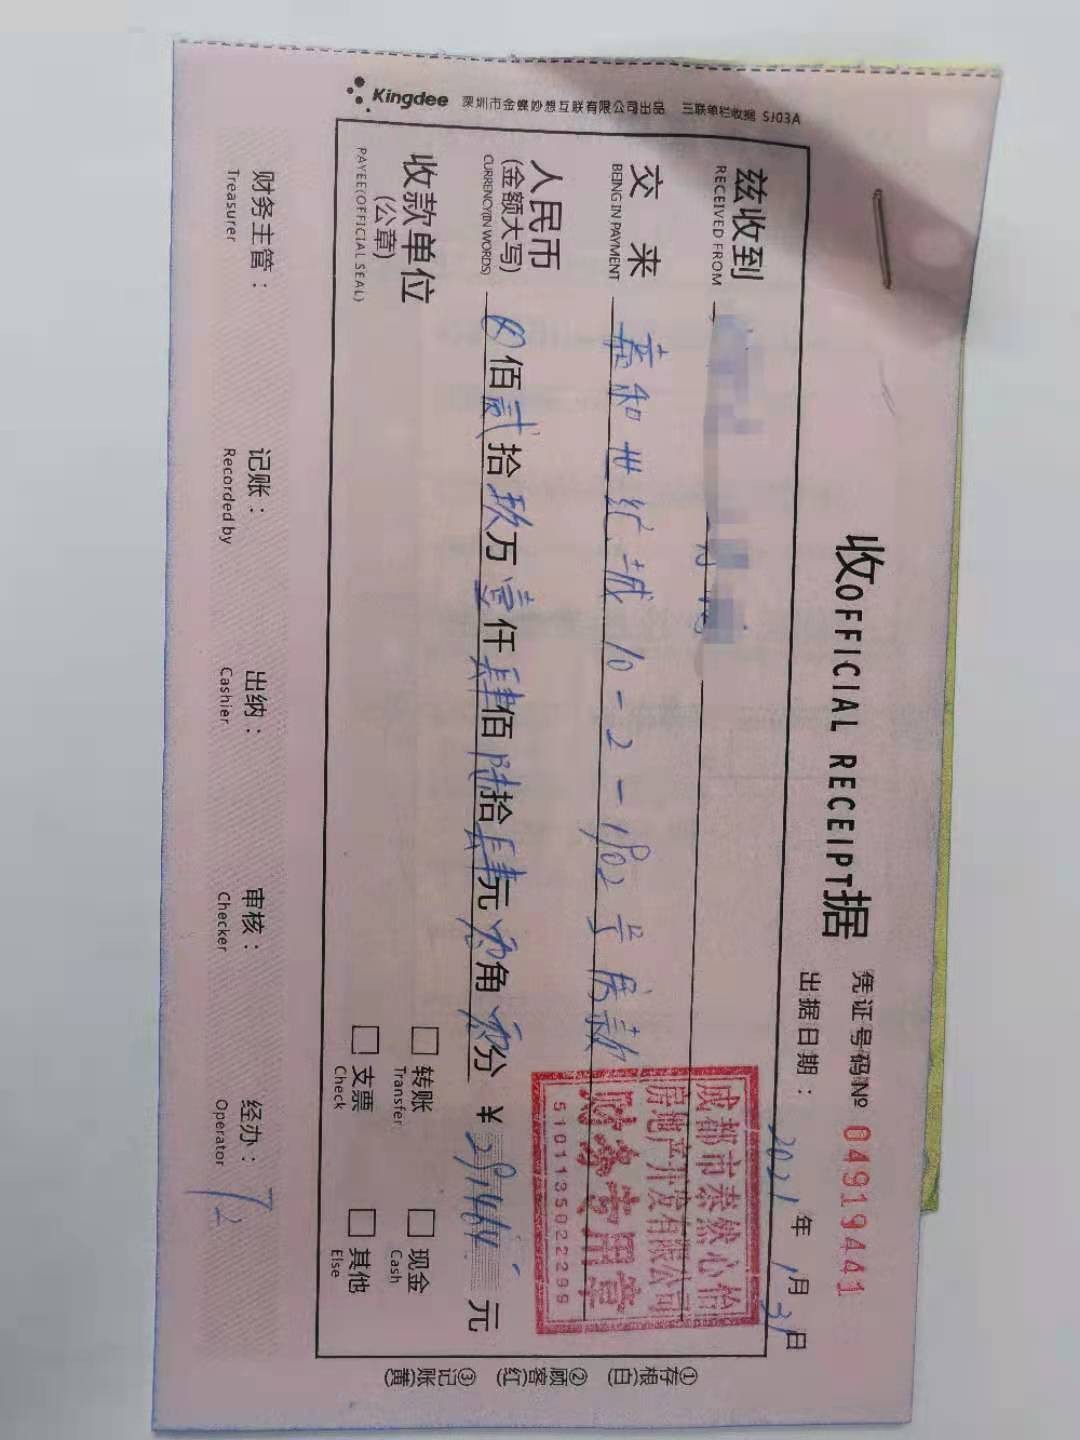 Kingdee 深圳市金蝶妙想互联有限公司出品 三联单栏收据 SJ03A
收据
OFFICIAL RECEIPT
凭证号码№ 0491944​1
出据日期： 2021 年 1 月 31 日
兹收到
RECEIVED FROM
交来 嘉和世纪城10-2-1902号房款
BEING IN PAYMENT
人民币
(金额大写) 佰贰拾玖万壹仟肆佰陆拾肆元零角零分 ¥ 291464 元
CURRENCY(IN WORDS)
收款单位
(公章)
PAYEE(OFFICIAL SEAL)
□ 转账 □ 现金
Transfer Cash
□ 支票 □ 其他
Check Else
成都市泰然心怡
房地产开发有限公司
财务专用章
5101135022299
财务主管： 记账： 出纳： 审核： 经办：
Treasurer Recorded by Cashier Checker Operator
①存根(白) ②顾客(红) ③记账(黄)